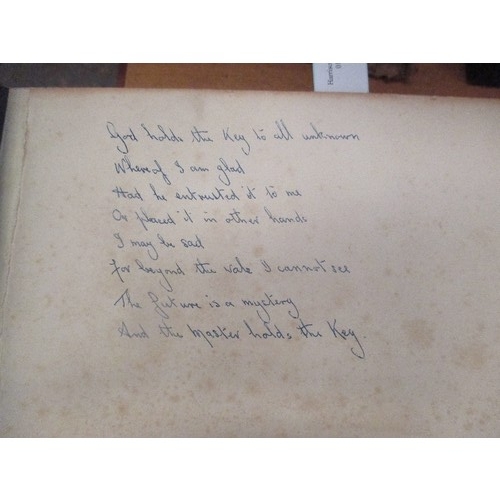 God holds the Key to all unknown
Whereof I am glad
Had he entrusted it to me
Or placed it in other hands
I may be sad
for beyond the vale I cannot see
The future is a mystery
And the Master holds the Key.